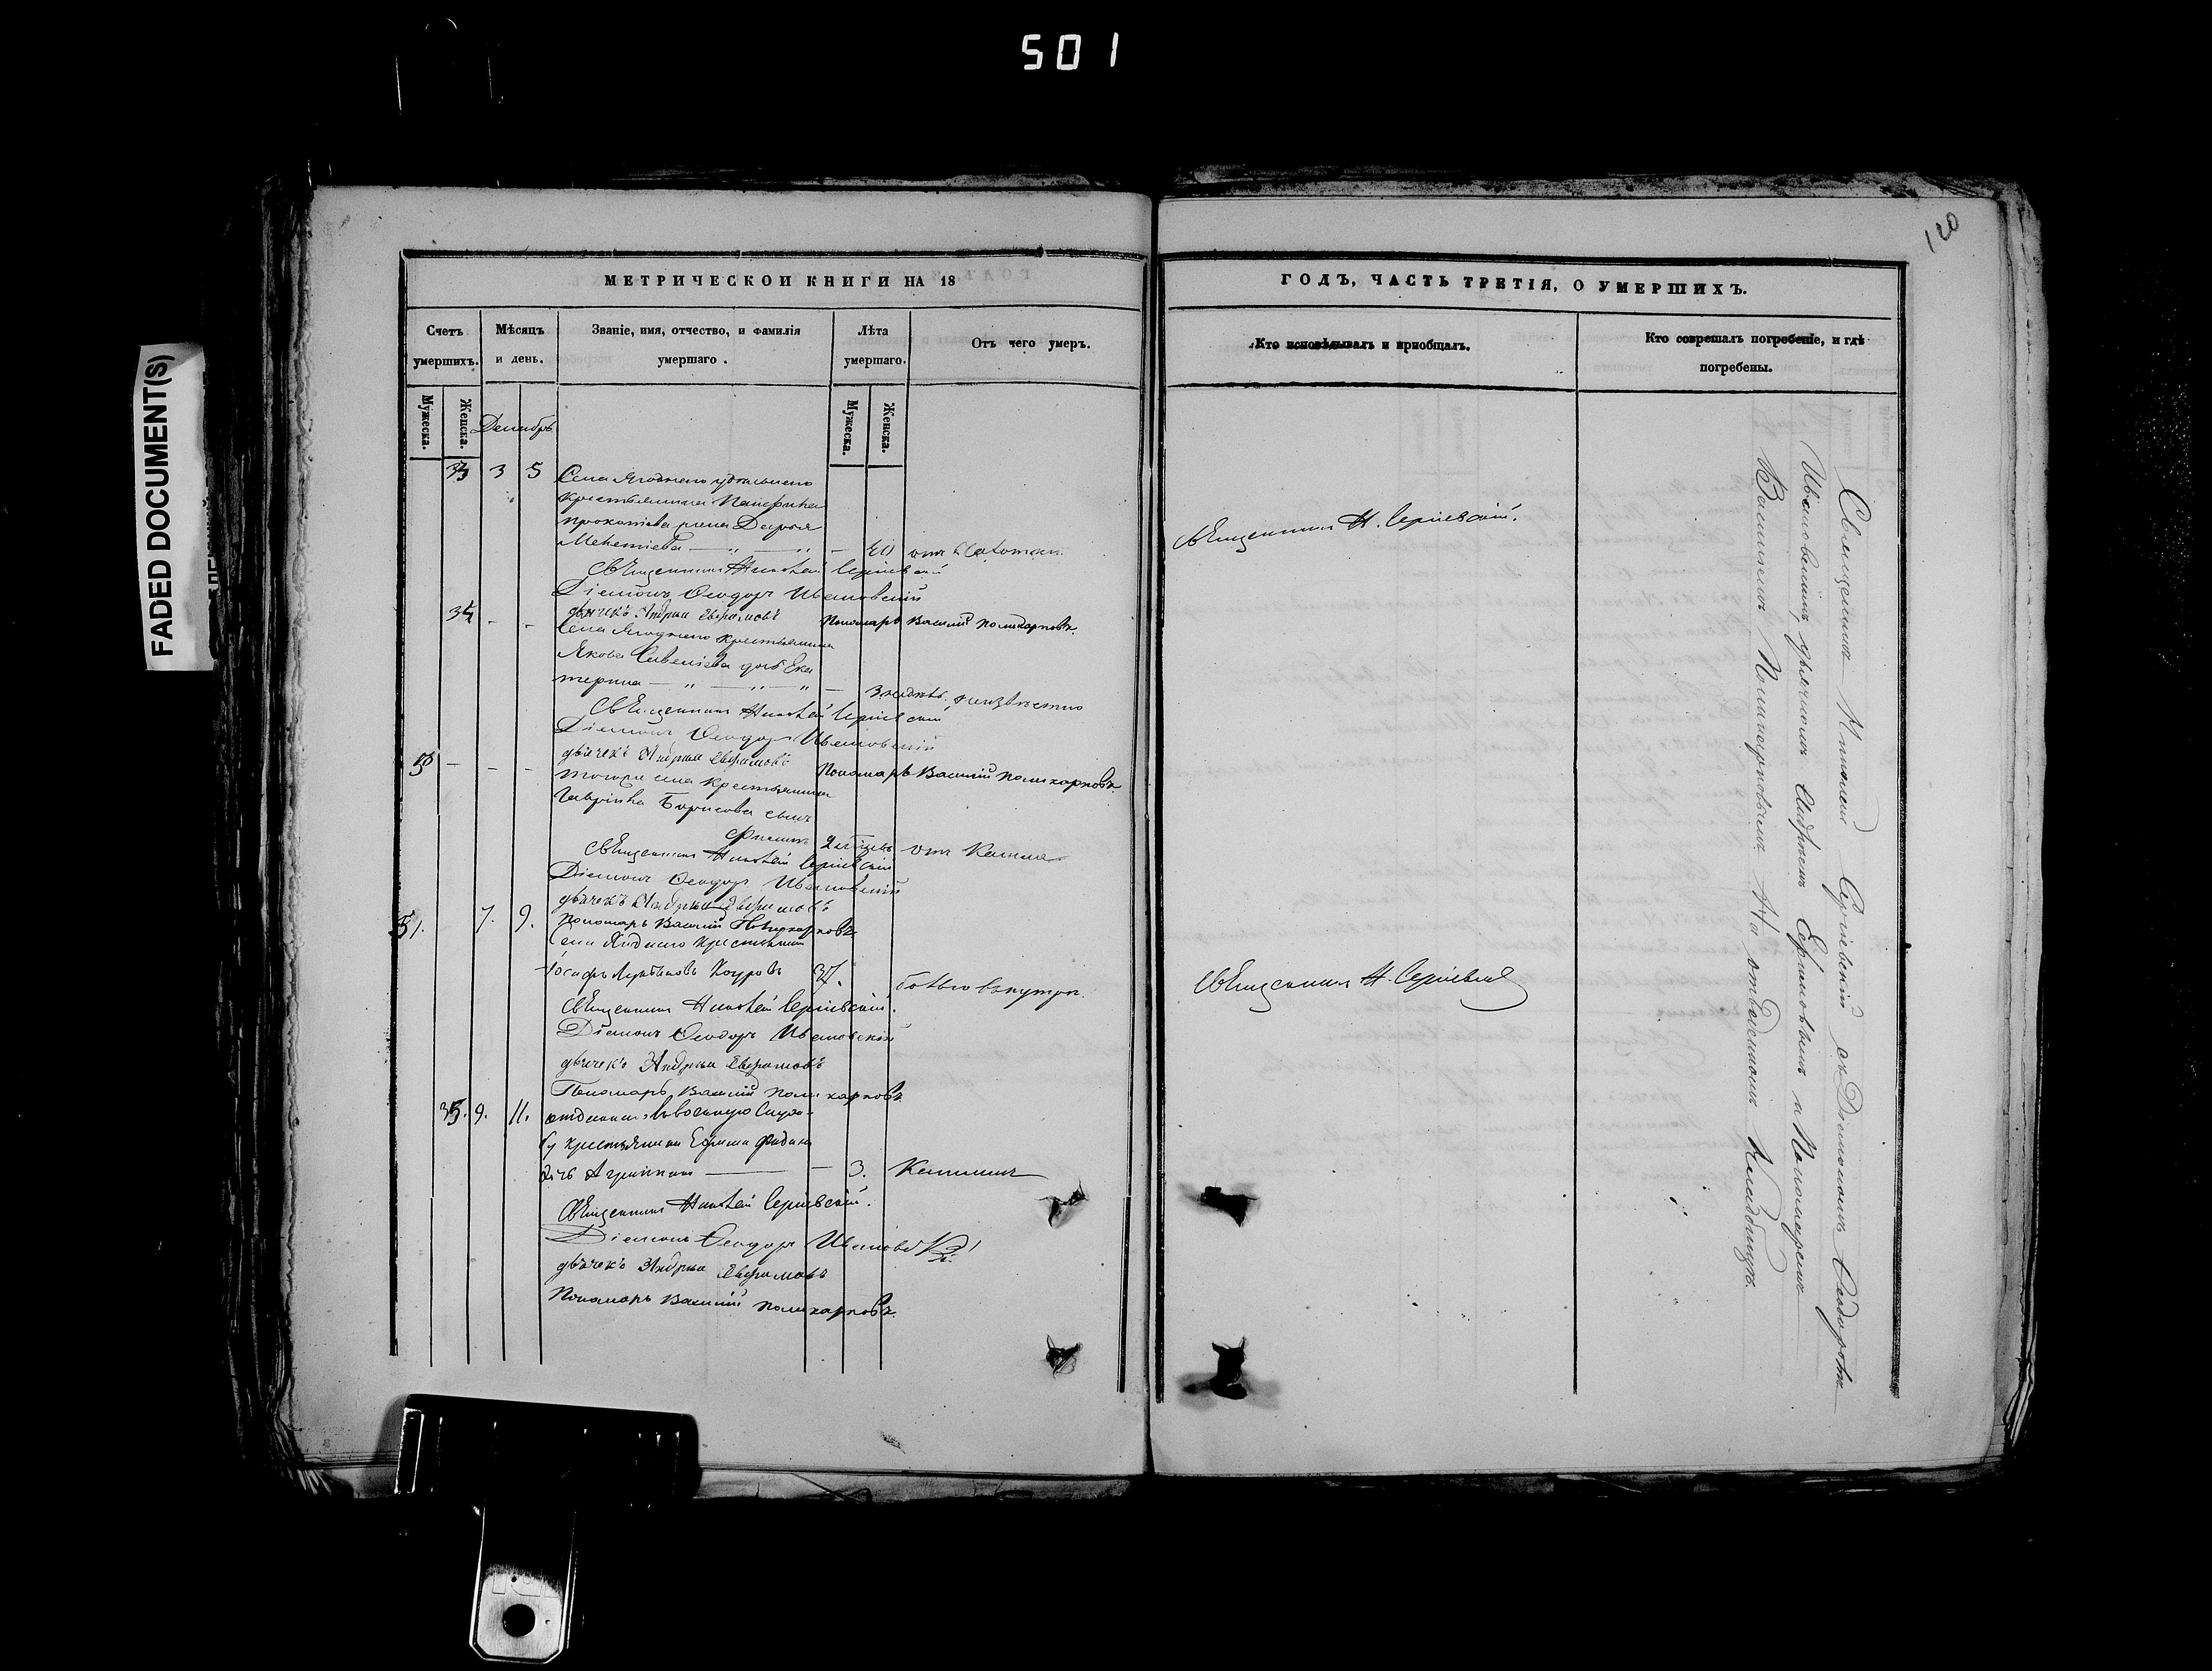 501
FADED DOCUMENT(S)
120
МЕТРИЧЕСКОЙ КНИГИ НА 18
Счетъ умершихъ.
Мѣсяцъ и день.
Званіе, имя, отчество, и фамилія умершаго.
Лѣта умершаго.
Отъ чего умеръ.
Мужеска.
Женска.
Мужеска.
Женска.
Декабрь
33 3 5 Села Ягоднаго удѣльнаго
крестьянина Панфила
Прокопіева жена Дарья
Мекетіева — " — " — 40 отъ чахотки.
Священникъ Николай Сергіевскій
Діаконъ Ѳеодоръ Ивановскій
дьячекъ Андрей Ефремовъ Пономарь Василій Поликарповъ.
34 - - Села Ягоднаго крестьянина
Якова Савеліева дочь Ека
терина — " — " — " — 3 недѣль, неизвѣстно
Священникъ Николай Сергіевскій
Діаконъ Ѳеодоръ Ивановскій
дьячекъ Андрей Ефремовъ Пономарь Василій Поликарповъ.
50 - - - Тогоже села крестьянина
Гаврила Борисова сынъ
Филипъ отъ кашля
Священникъ Николай Сергіевскій
Діаконъ Ѳеодоръ Ивановскій
дьячекъ Андрей Ефремовъ
Пономарь Василій Поликарповъ
51. 7. 9. Села Ягоднаго крестьянинъ
Іосифъ 37. болью внутри.
Священникъ Николай Сергіевскій.
Діаконъ Ѳеодоръ Ивановскій
дьячекъ Андрей Ефремовъ
Пономарь Василій Поликарповъ.
35. 9. 11. отданнаго въ военную служ-
бу крестьянина Ефима
дочь Агрипина — — 3. Кашлемъ
Священникъ Николай Сергіевскій.
Діаконъ Ѳеодоръ Ивановскій
дьячекъ Андрей Ефремовъ
Пономарь Василій Поликарповъ.
ГОДЪ, ЧАСТЬ ТРЕТІЯ, О УМЕРШИХЪ.
Кто исповѣдывалъ и пріобщалъ.
Кто совершалъ погребеніе, и гдѣ погребены.
Священникъ Н. Сергіевскій.
Священникъ Н. Сергіевскій
Священникъ Николай Сергіевскій съ Діакономъ Ѳеодоромъ
Ивановскимъ, дьячкомъ Андреемъ Ефремовымъ и Пономаремъ
Василіемъ Поликарповымъ На отведенномъ Кладбищѣ.